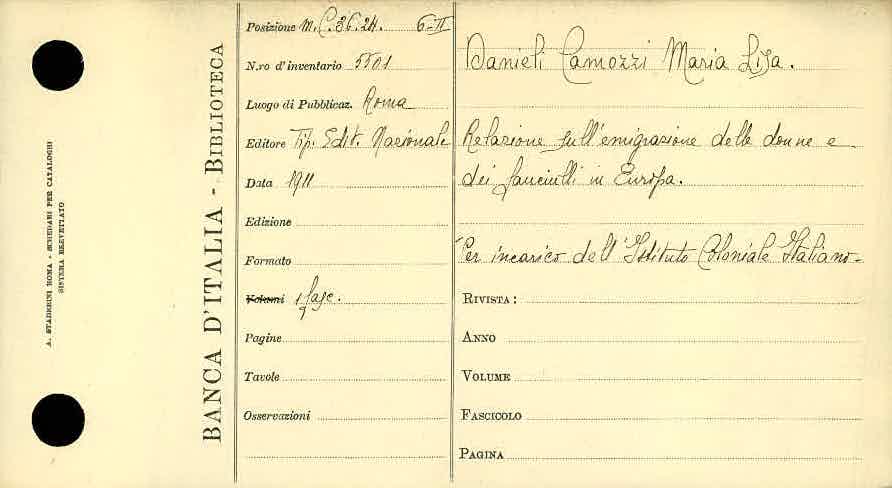 A. STADERINI ROMA - SCHEDARI PER CATALOGHI
SISTEMA BREVETTATO
BANCA D'ITALIA - BIBLIOTECA
Posizione M.C.36.24. 6-II
N.ro d'inventario 5501
Luogo di Pubblicaz. Roma
Editore Tip. Edit. Nazionale
Data 1911
Edizione
Formato
Volumi 1 fasc.
Pagine
Tavole
Osservazioni
Danieli Camozzi Maria Lisa.
Relazione sull'emigrazione delle donne e
dei fanciulli in Europa.
Per incarico dell'Istituto Coloniale Italiano-
RIVISTA:
ANNO
VOLUME
FASCICOLO
PAGINA